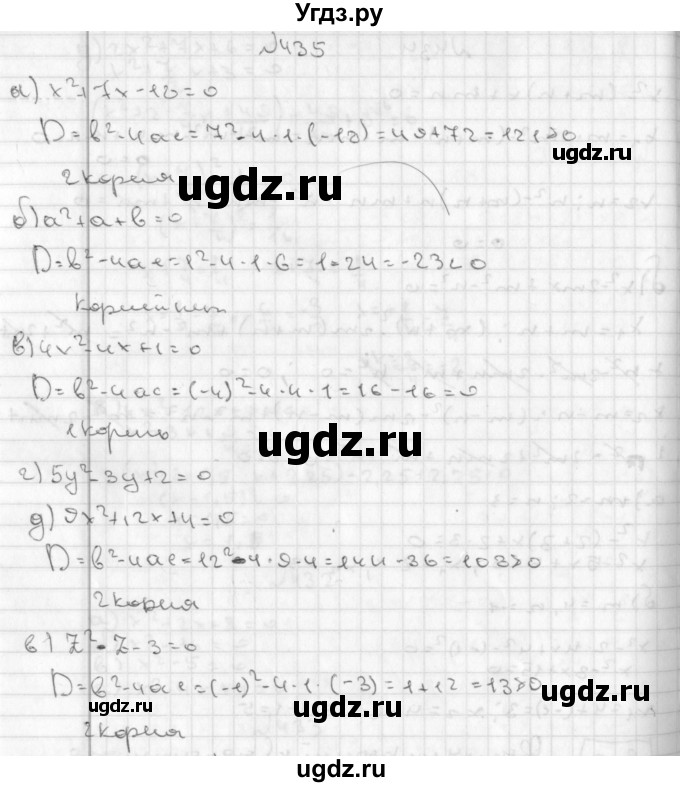 Угдз.ру
№435
а) x²+7x-18=0
D=b²-4ac=7²-4·1·(-18)=49+72=121>0
ugdz.ru
2 корня
ugdz.ru
б) a²+a+6=0
D=b²-4ac=1²-4·1·6=1-24=-23<0
Корней нет
в) 4x²-4x+1=0
D=b²-4ac=(-4)²-4·4·1=16-16=0
ugdz.ru
1 корень
ugdz.ru
г) 5y²-3y+2=0
д) 9x²+12x+4=0
D=b²-4ac=12²-4·9·4=144-36=108>0
2 корня
в) Z²-Z-3=0
D=b²-4ac=(-1)²-4·1·(-3)=1+12=13>0
ugdz.ru
ugdz.ru
2 корня
ugdz.ru
ugdz.ru